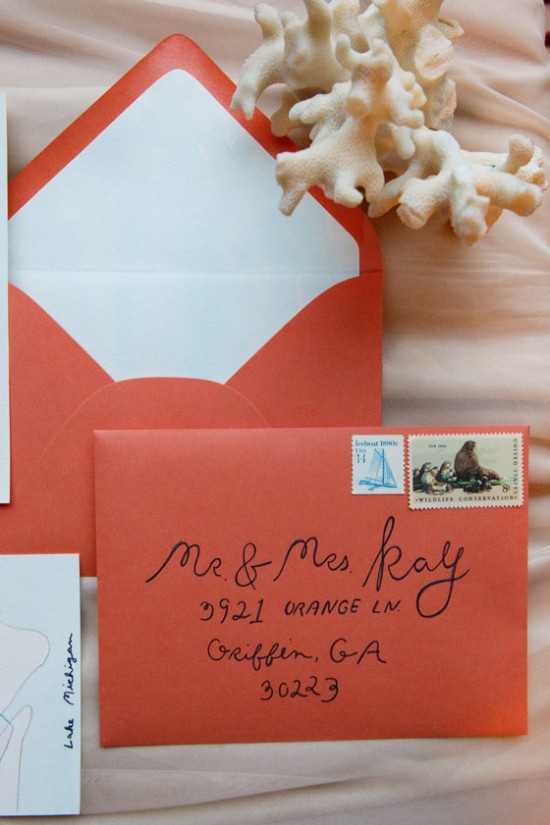 Iceboat 1880s
USA
14
FUR SEAL
UNITED STATES
8c
WILDLIFE CONSERVATION
Mr. & Mrs. Kay
3921 ORANGE LN.
Griffin, GA
30223
Lake Michigan